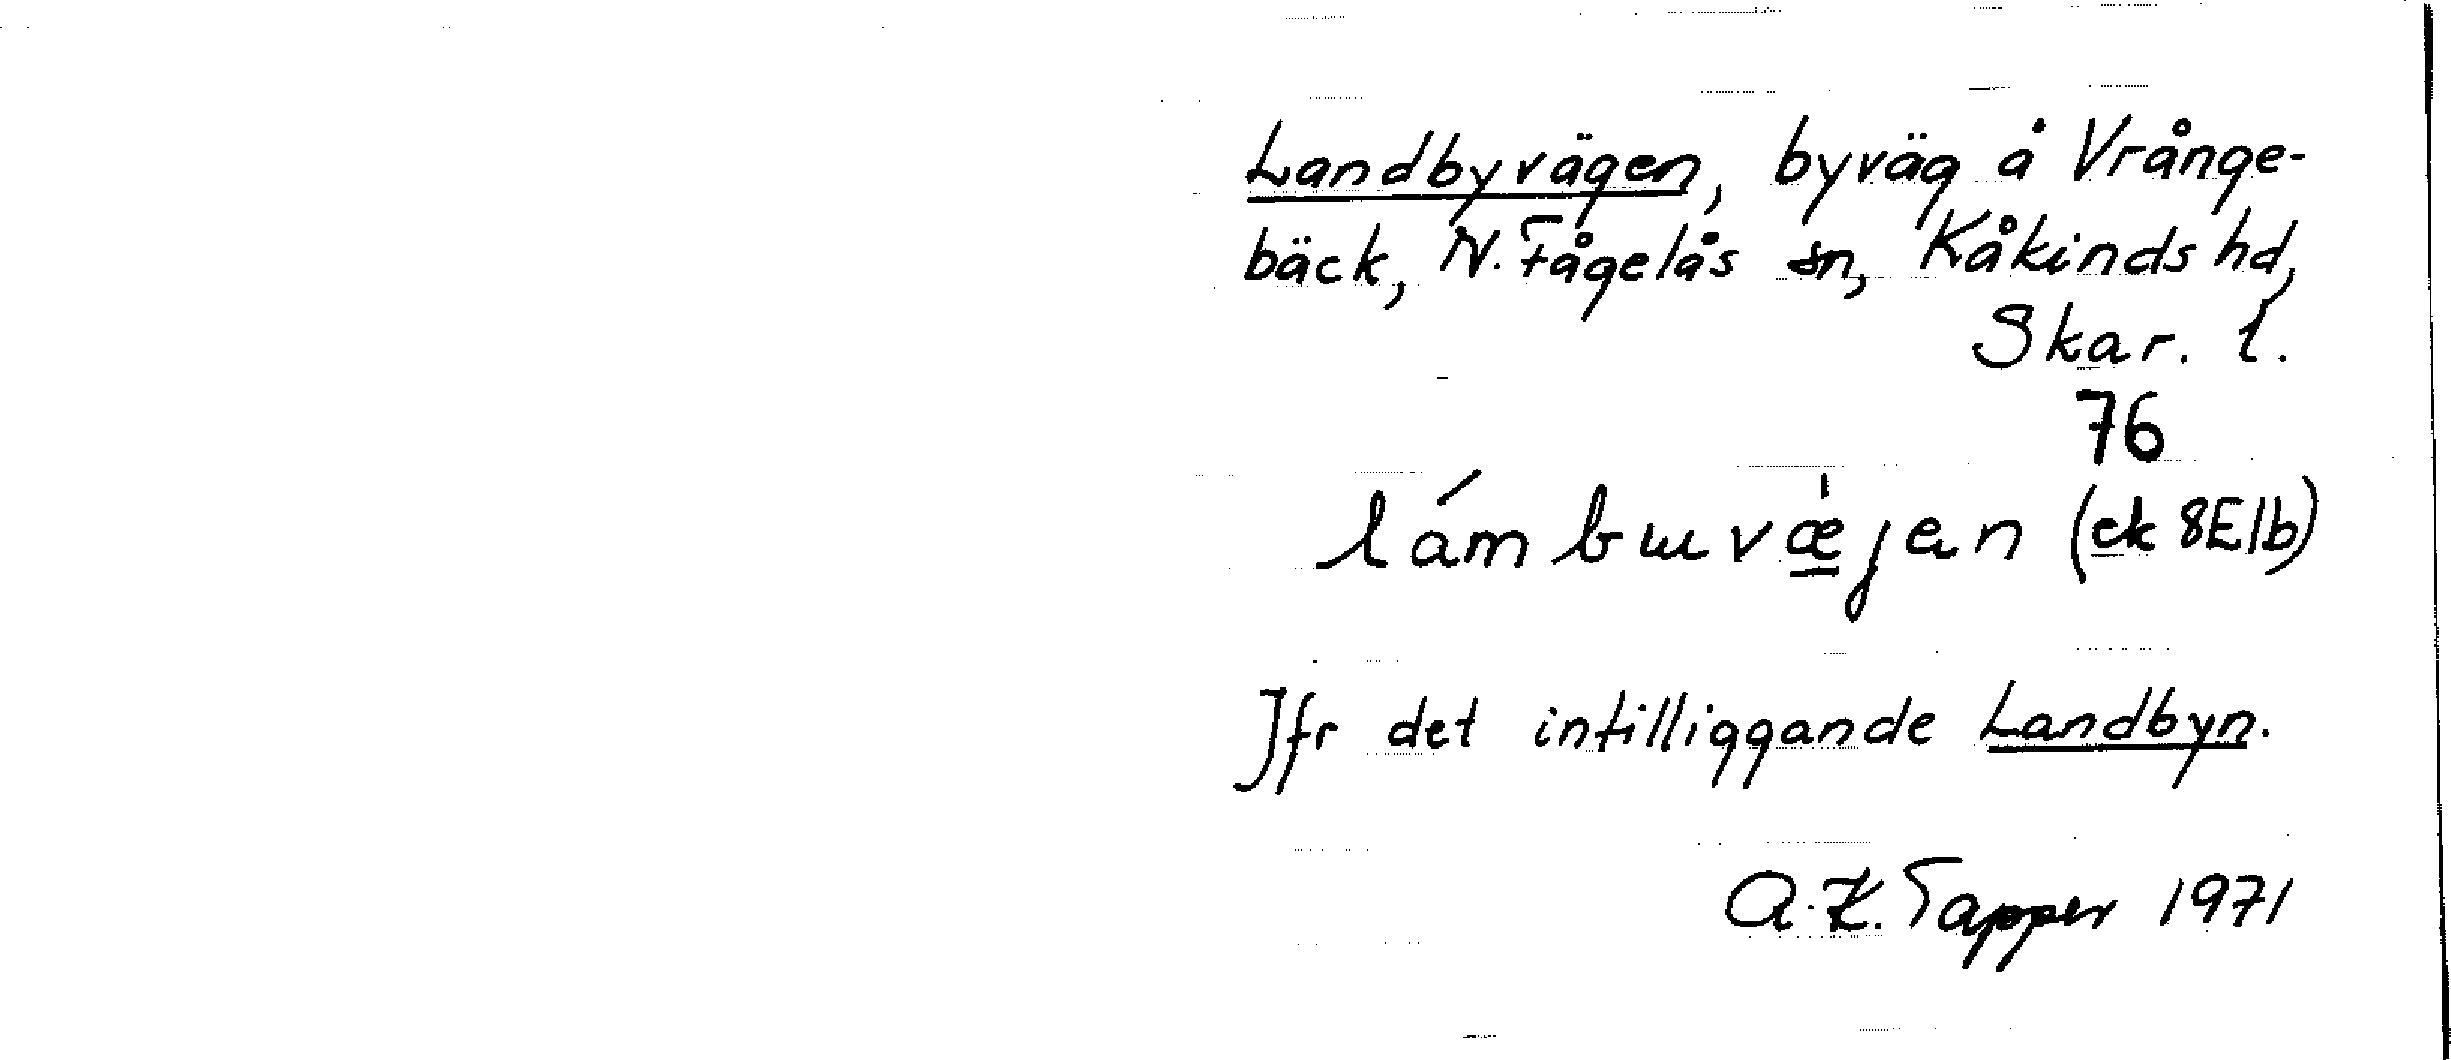 Landbyvägen, byväg å Vrånge-
bäck, N. Fågelås sn, Kåkinds hd,
Skar. l.
76
lámbɯvæ̀jen (ek 8E1b)
Jfr det intilliggande Landbyn.
A.K. Tapper 1971